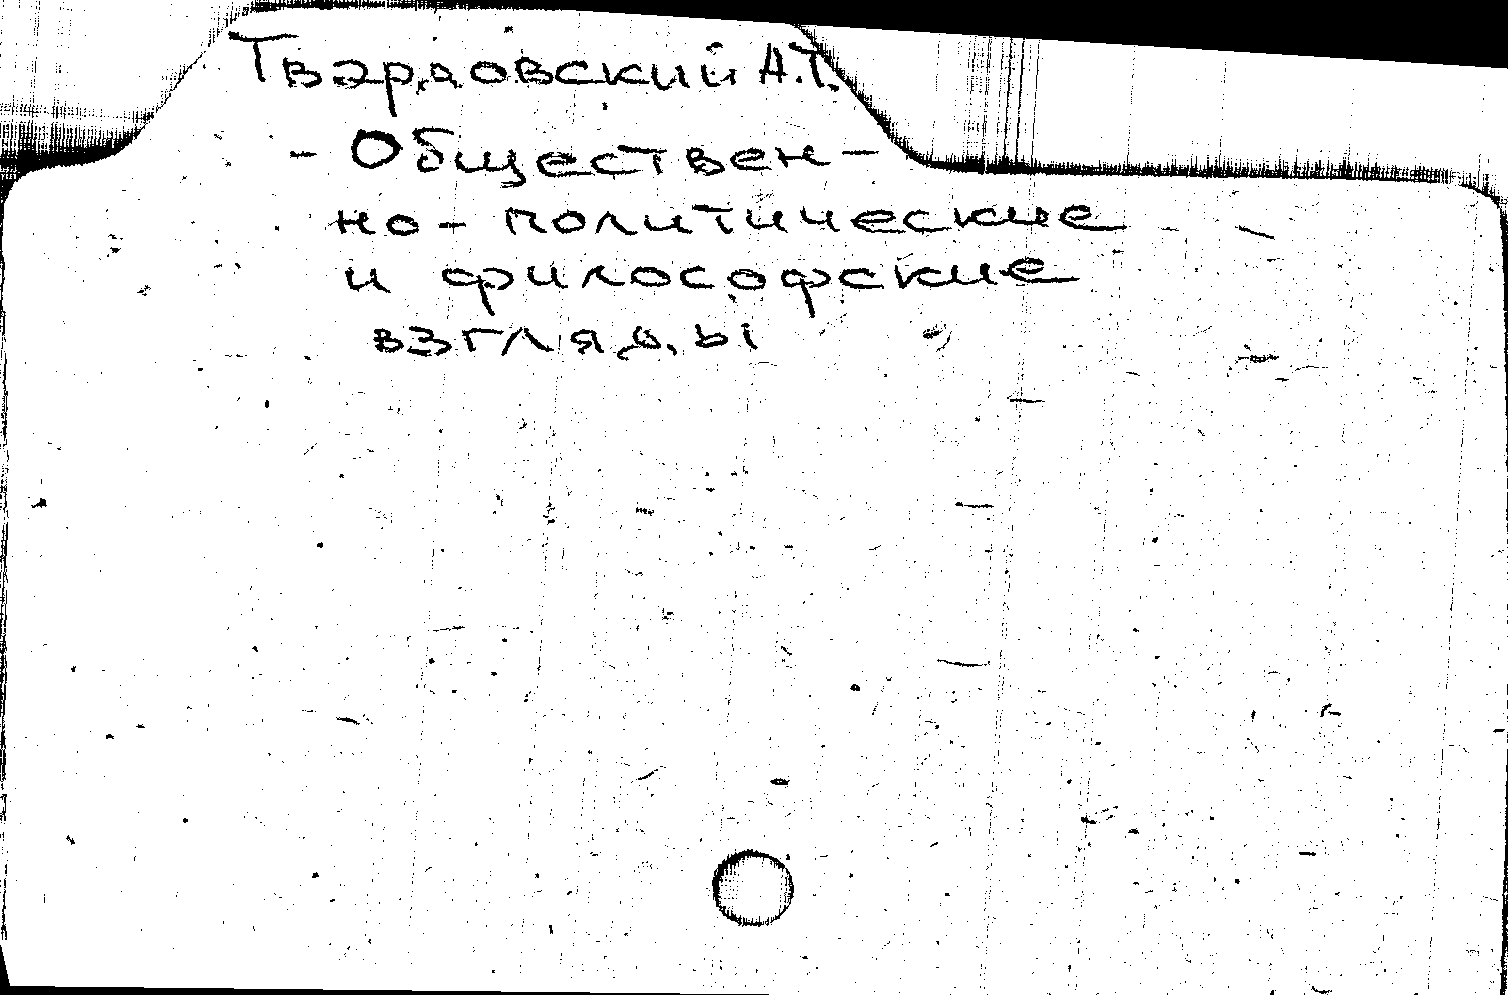 Твардовский А.Т.
- Обществен-
но-политические
и философские
взгляды